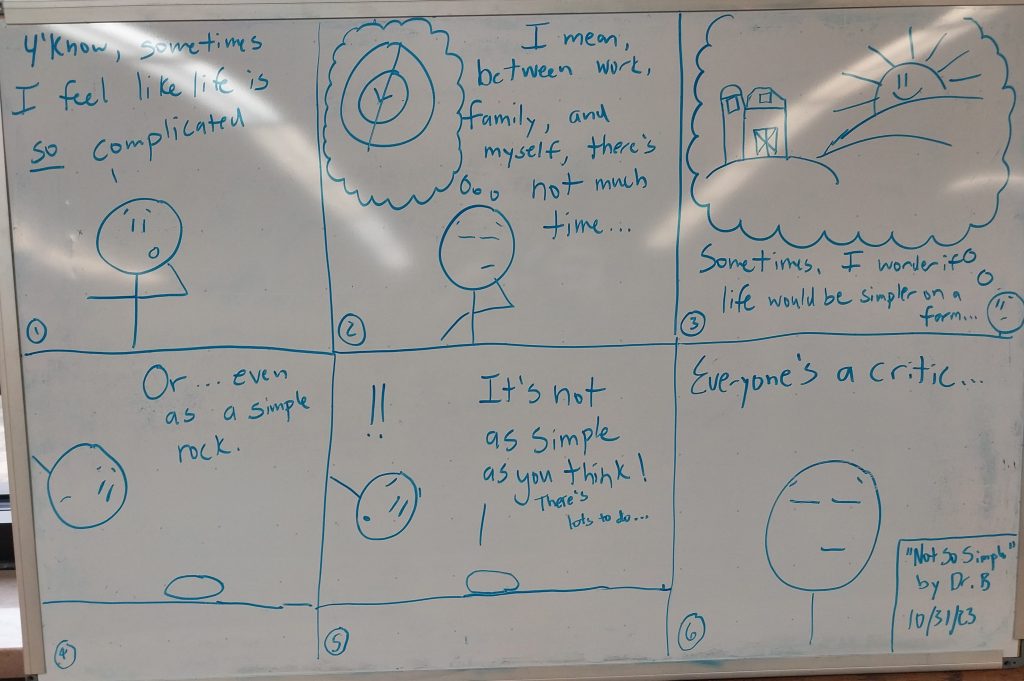 Y'Know, sometimes
I feel like life is
so complicated
1
I mean,
between work,
family, and
myself, there's
not much
time...
2
Sometimes, I wonder if
life would be simpler on a
farm...
3
Or... even
as a simple
rock.
4
!!
It's not
as simple
as you think!
There's
lots to do...
5
Everyone's a critic...
6
"Not So Simple"
by Dr. B
10/31/23